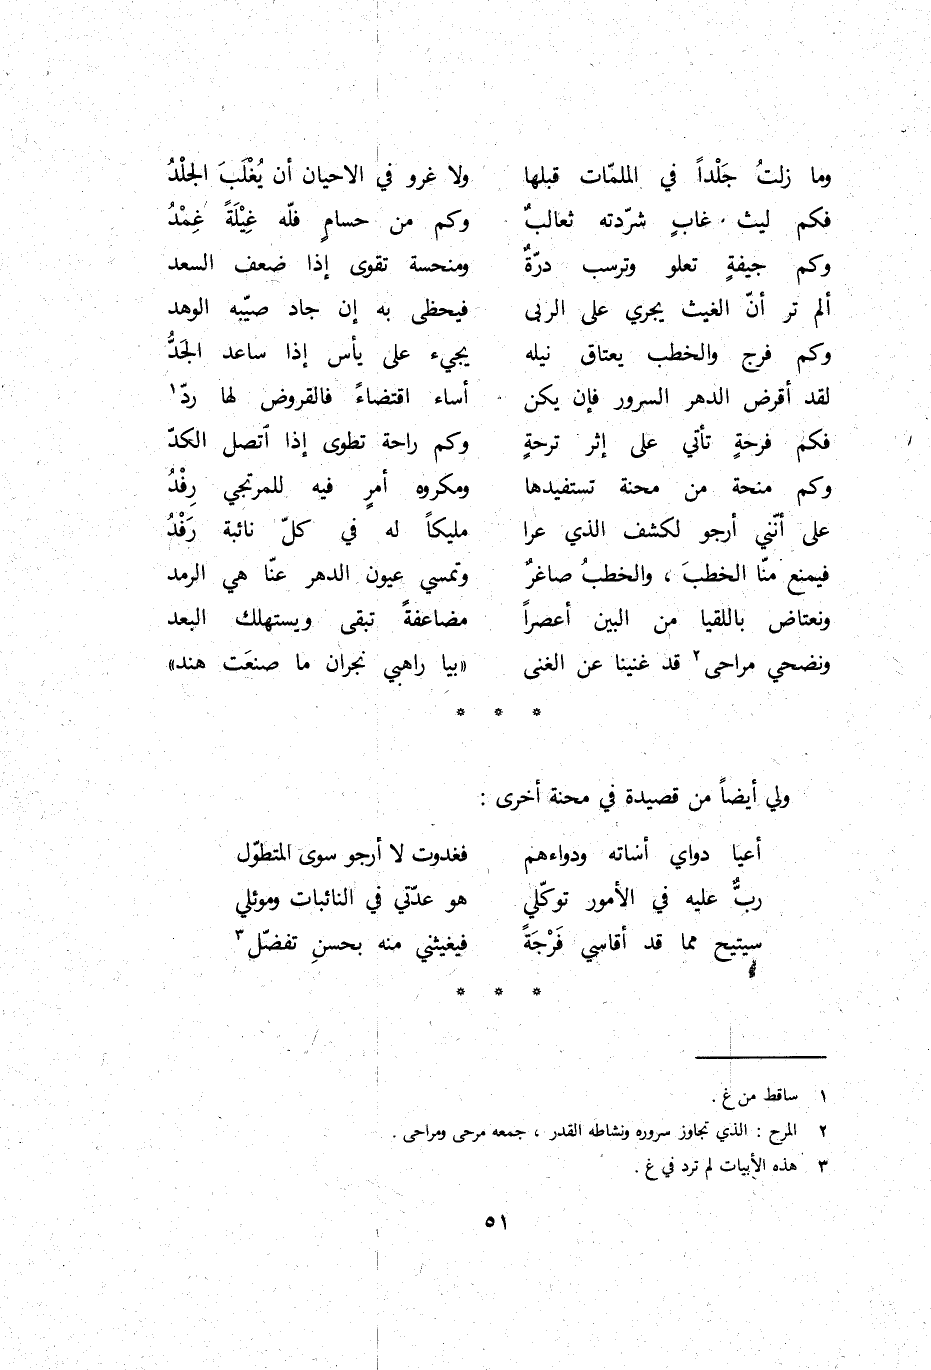 وما زلتُ جَلْداً في الملمّات قبلها ولا غرو في الاحيان أن يُغْلَبَ الجَلْدُ
فكم ليث غابٍ شرّدته ثعالبٌ وكم من حسامٍ فلّه غِيْلَةً غِمْدُ
وكم جيفةٍ تعلو وترسب درّةٌ ومنحسة تقوى إذا ضعف السعد
ألم تر أنّ الغيث يجري على الربى فيحظى به إن جاد صيّبه الوهد
وكم فرج والخطب يعتاق نيله يجيء على يأس إذا ساعد الجَدُّ
لقد أقرض الدهر السرور فإن يكن أساء اقتضاءً فالقروض لها ردّ١
فكم فرحةٍ تأتي على إثر ترحةٍ وكم راحة تطوى إذا اتصل الكدّ
وكم منحة من محنة تستفيدها ومكروه أمرٍ فيه للمرتجي رِفْدُ
على أنّني أرجو لكشف الذي عرا مليكاً له في كلّ نائبة رَفْدُ
فيمنع منّا الخطبَ ، والخطبُ صاغرٌ وتمسي عيون الدهر عنّا هي الرمد
ونعتاض باللقيا من البين أعصراً مضاعفةً تبقى ويستهلك البعد
ونضحي مراحى٢ قد غنينا عن الغنى «بيا راهبي نجران ما صنعَت هند»
* * *
ولي أيضاً من قصيدة في محنة أخرى :
أعيا دواي أساته ودواءهم فغدوت لا أرجو سوى المتطوّل
ربٌّ عليه في الأمور توكّلي هو عدّتي في النائبات وموئلي
سيتيح مما قد أقاسي فَرْجَةً فيغيثني منه بحسنِ تفضّل٣
* * *
١ ساقط من غ .
٢ المرح : الذي تجاوز سروره ونشاطه القدر ، جمعه مرحى ومراحى .
٣ هذه الأبيات لم ترد في غ .
٥١